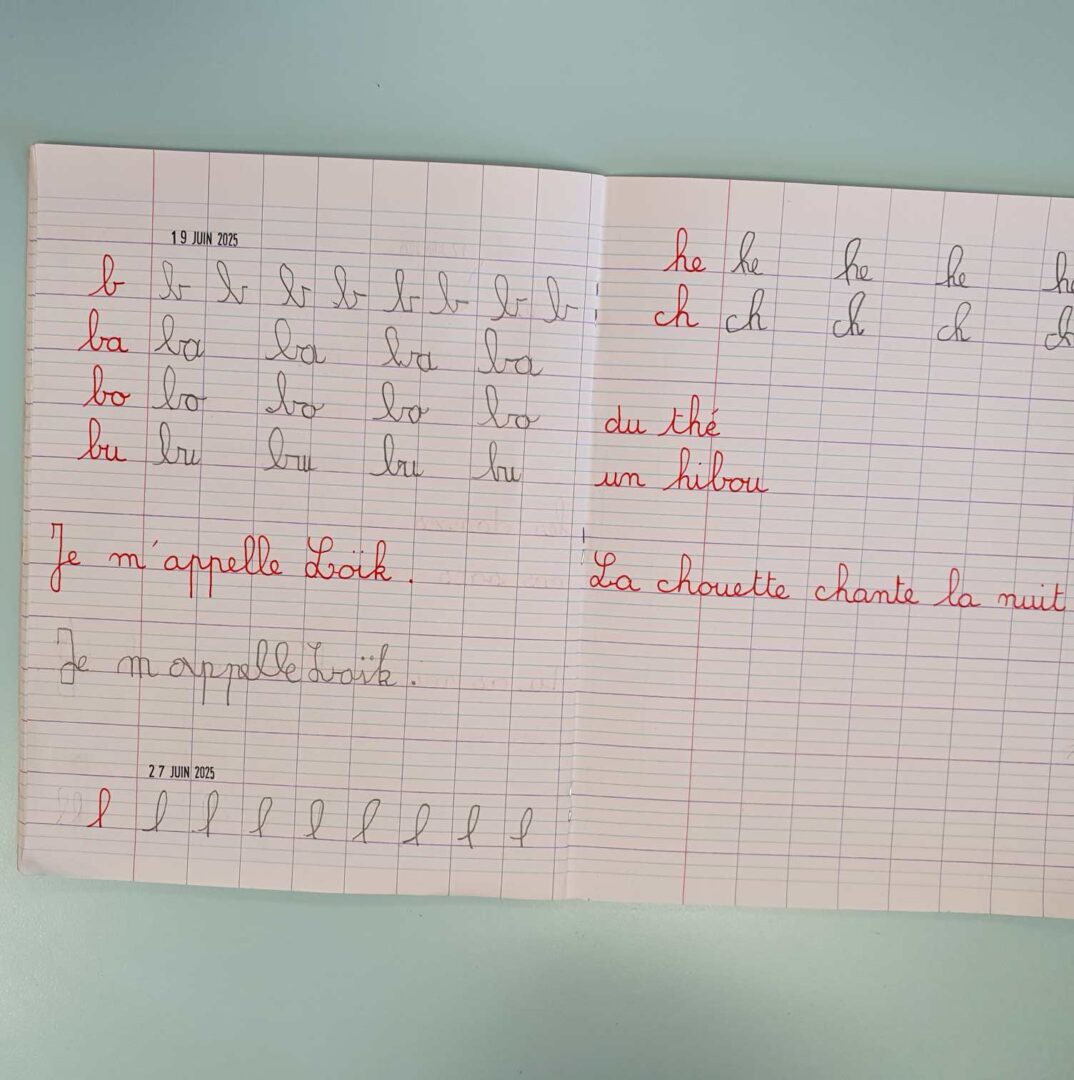 19 JUIN 2025
b b b b b b b b b
ba ba ba ba ba
bo bo bo bo bo
bu bu bu bu bu
Je m'appelle Loïk.
Je m'appelle Loïk.
27 JUIN 2025
l l l l l l l l l
he he he he he
ch ch ch ch ch
du thé
un hibou
La chouette chante la nuit